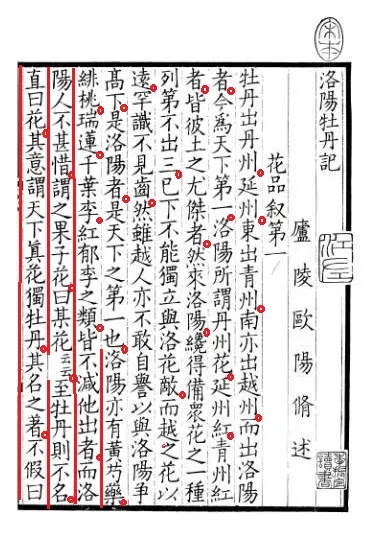 洛陽牡丹記
廬陵歐陽脩述
花品叙第一
牡丹出丹州延州東出青州南亦出越州而出洛陽
者今為天下第一洛陽所謂丹州花延州紅青州紅
者皆彼土之尤傑者然来洛陽纔得備衆花之一種
列第不出三已下不能獨立與洛花敵而越之花以
遠罕識不見齒然雖越人亦不敢自譽以與洛陽爭
髙下是洛陽者是天下之第一也洛陽亦有黃芍藥
緋桃瑞蓮千葉李紅郁李之類皆不減他出者而洛
陽人不甚惜謂之果子花曰某花云云至牡丹則不名
直曰花其意謂天下真花獨牡丹其名之著不假曰
讀書